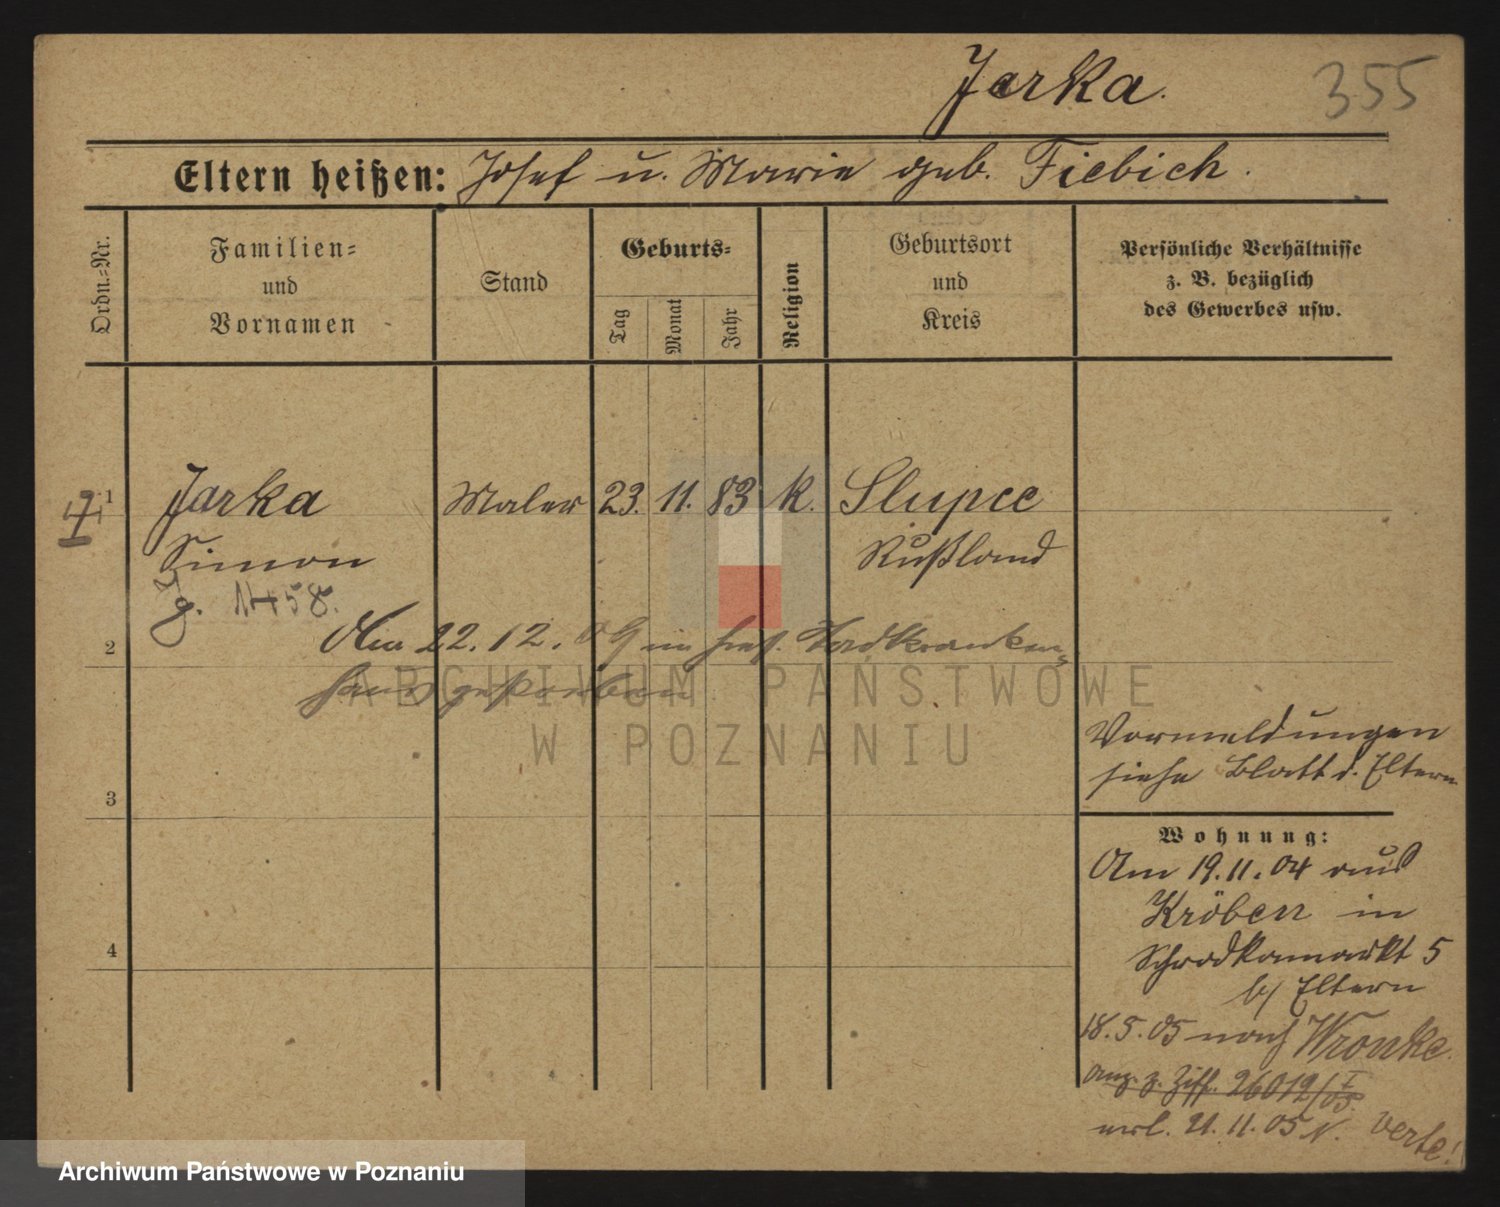 Jarka. 355
Eltern heißen: Josef u. Marie geb. Fiebich.
Ordn.-Nr.
Familien- und Vornamen
Stand
Geburts-
Tag
Monat
Jahr
Religion
Geburtsort und Kreis
Persönliche Verhältnisse
z. B. bezüglich
des Gewerbes usw.
1 Jarka Maler 23. 11. 83 k. Slupce
Simon Rußland
Jg.
2 Am 22.12.09 im Stadtkranken-
haus gestorben
ARCHIWUM PAŃSTWOWE
W POZNANIU
Vormeldungen
siehe Blatt d. Eltern
3
Wohnung:
Am 19.11.04 aus
Kröben in
4
Schrodkamarkt 5
b/ Eltern
18.5.05 nach Wronke.
anz. z. Ziff. 26012/05.
21.11.05 N. Verte!
Archiwum Państwowe w Poznaniu